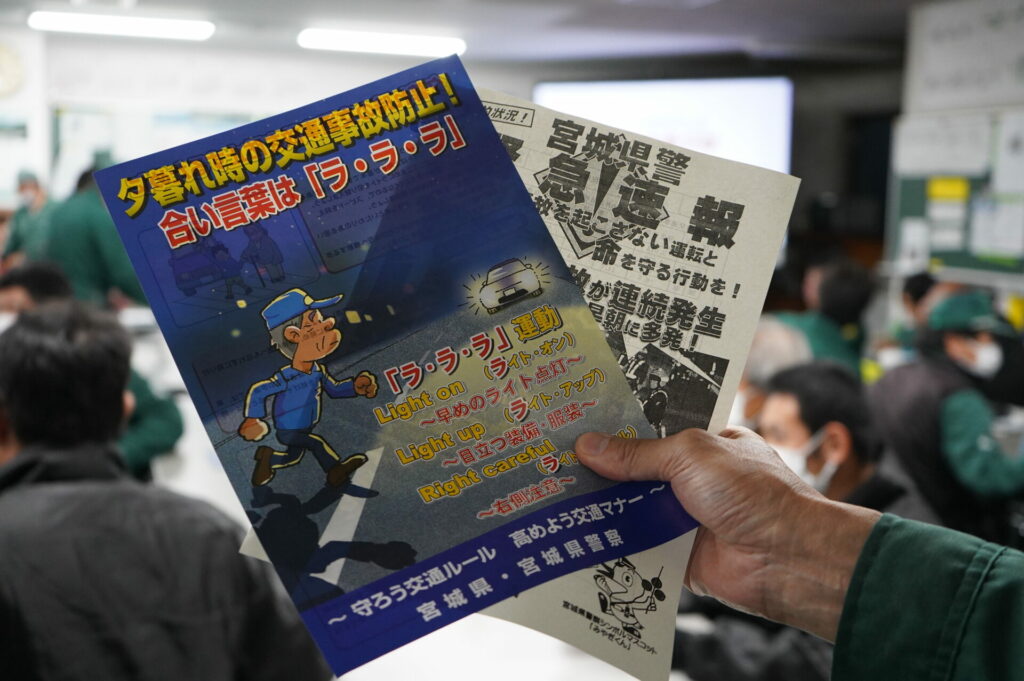 夕暮れ時の交通事故防止!
合い言葉は「ラ・ラ・ラ」
「ラ・ラ・ラ」運動
Light on (ライト・オン)
~早めのライト点灯~
Light up (ライト・アップ)
~目立つ装備・服装~
Right careful (ライト
~右側注意~
~ 守ろう交通ルール 高めよう交通マナー ~
宮城県・宮城県警察
状況!
宮城県警
急速報
を起こさない運転と
命を守る行動を!
が連続発生
朝に多発!
宮城県警察シンボルマスコット
「みやぎくん」